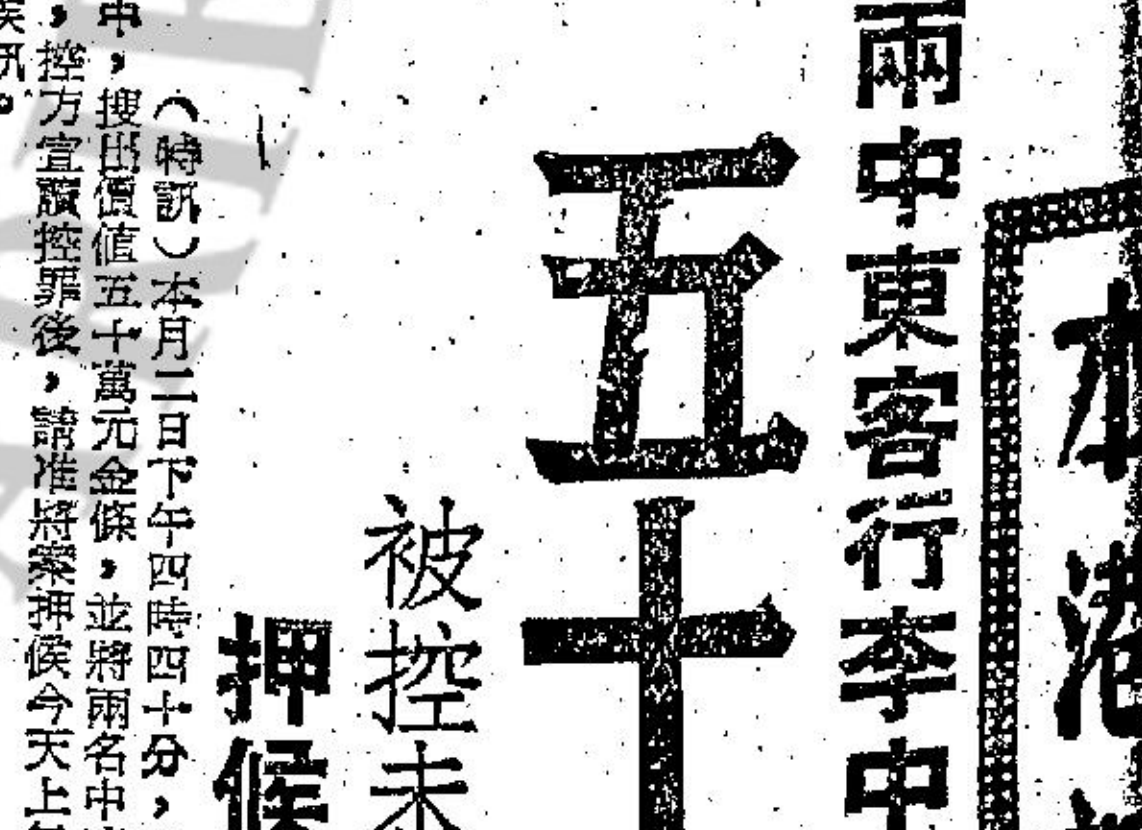 本港
兩中東客行李中
五十
被控未
押候
（特訊）本月二日下午四時四十分，
中，搜出價值五十萬元金條，並將兩名中
，控方宣讀控罪後，請准將案押候今天上
候訊。